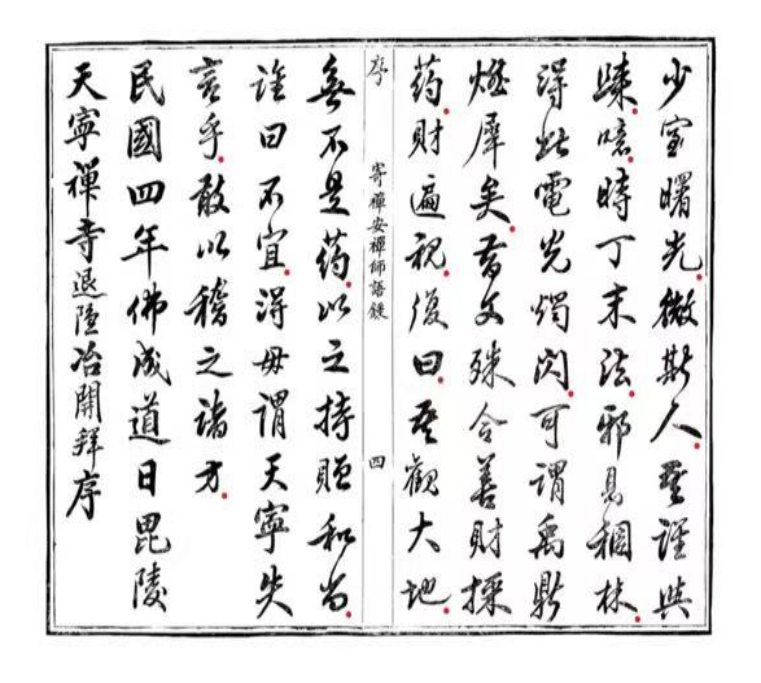 少室曙光。微斯人。吾誰與
歸。噫。時丁末法。邪見稠林。
得此電光燭閃。可謂禹鼎
燃犀矣。昔文殊令善財採
药。財遍視。復曰。吾觀大地。
序 寄禪安禪師語錄 四
無不是药。以之持贈和尚。
誰曰不宜。得毋謂天寧失
言乎。敢以稽之諸方。
民國四年佛成道日毘陵
天寧禪寺退隱冶開拜序